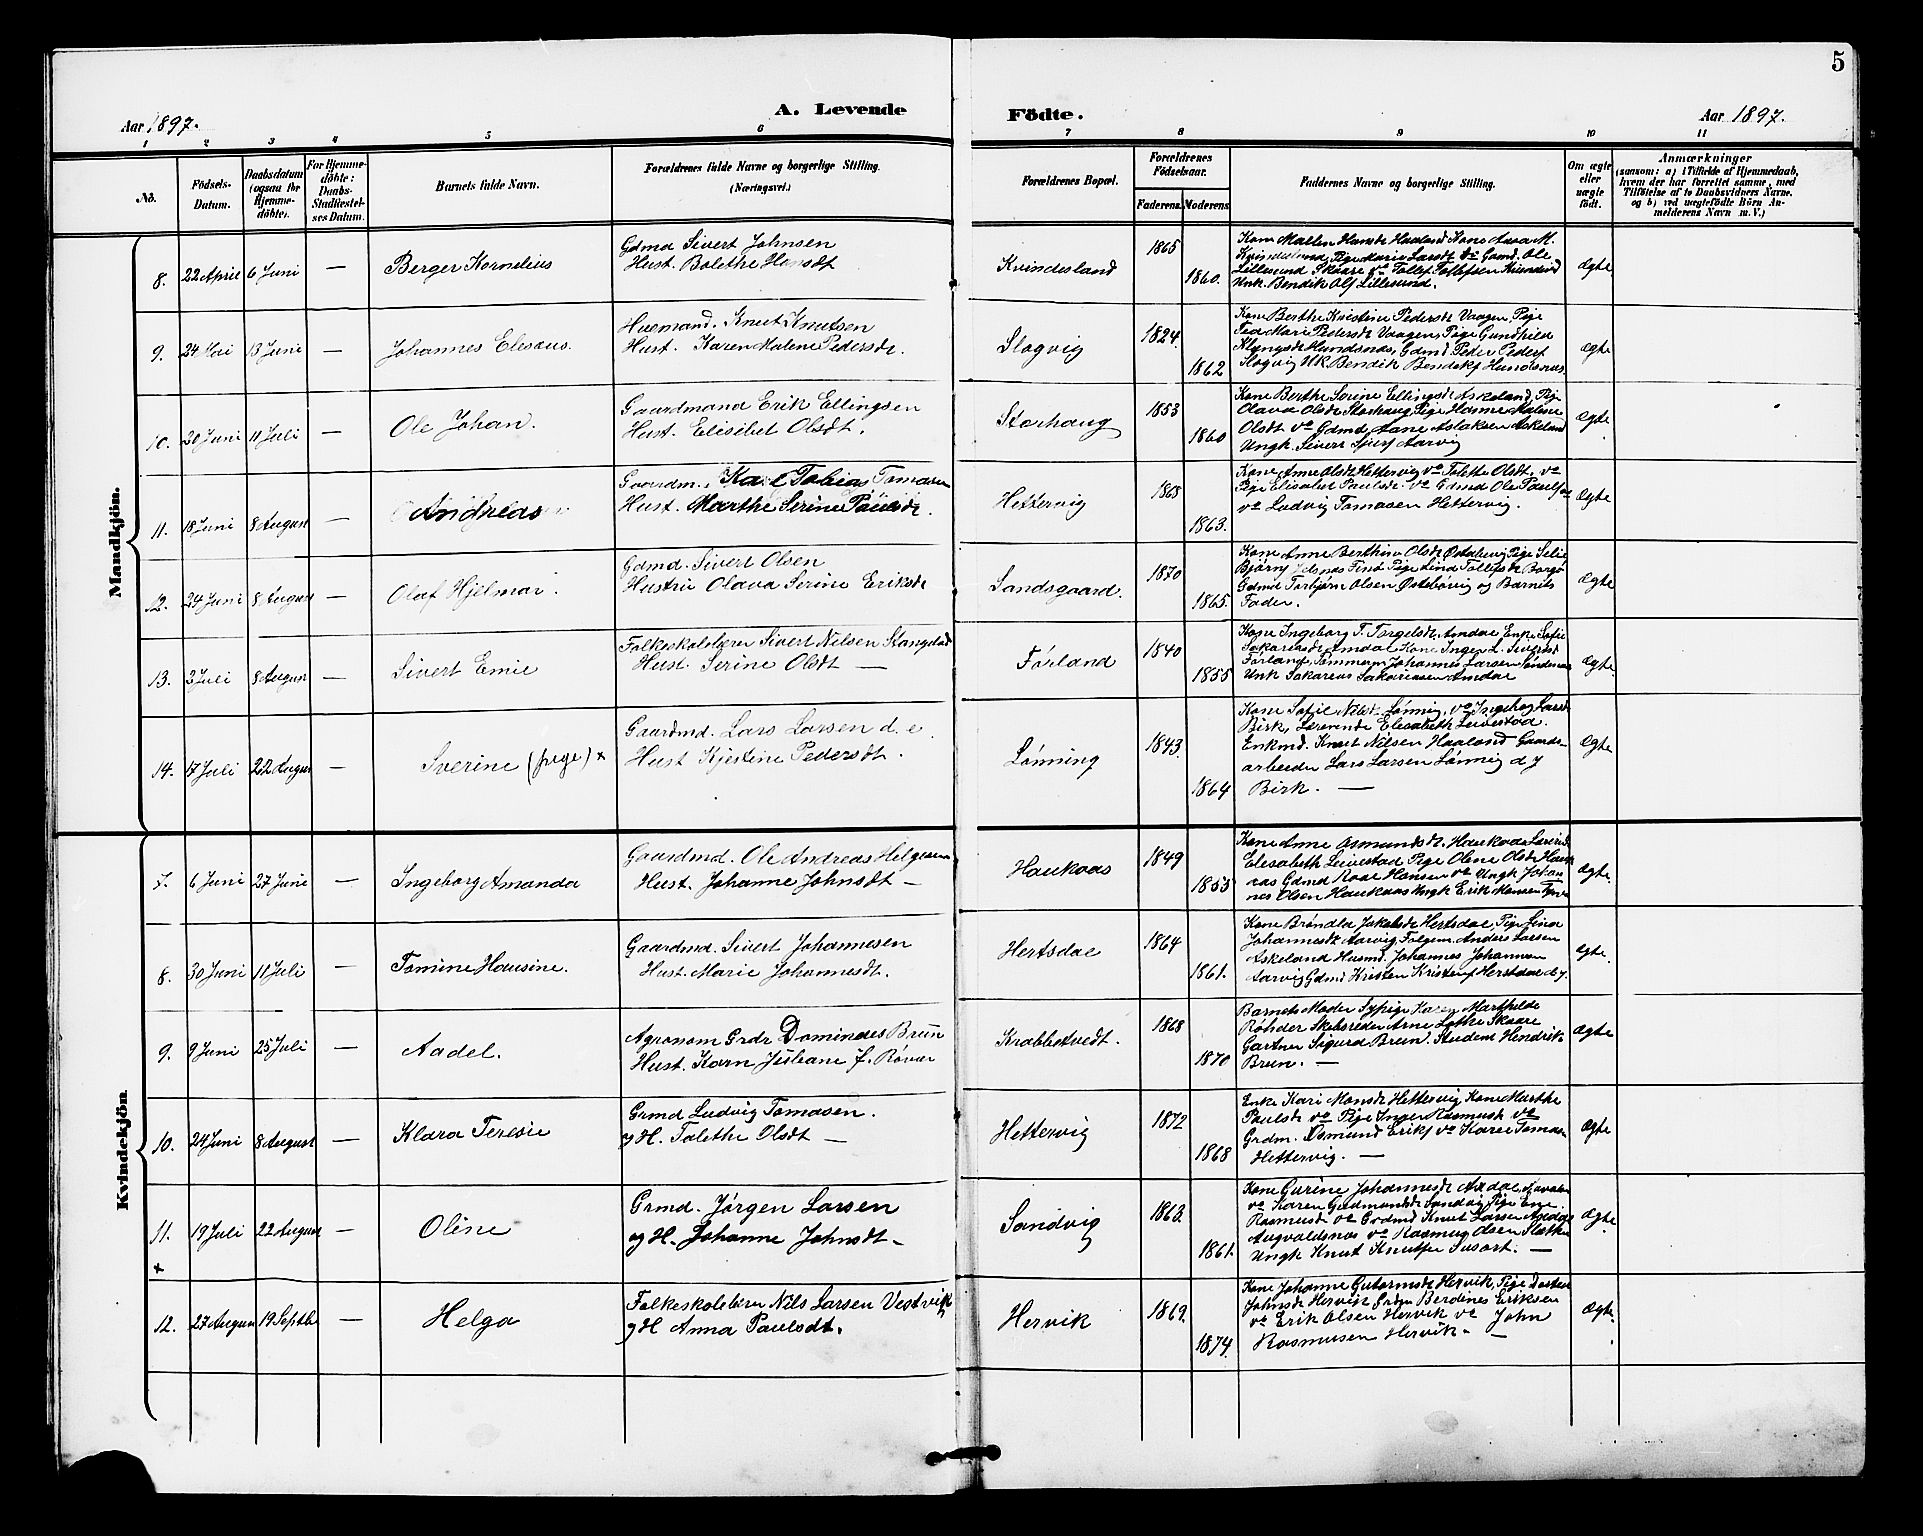 5
A. Levende Födte.
Aar 1897. Aar 1897.
1 2 3 4 5 6 7 8 9 10 11
No.
Födsels-Datum.
Daabsdatum (ogsaa for Hjemmedöbte).
For Hjemmedöbte: Daabs-Stadfæstelses Datum.
Barnets fulde Navn.
Forældrenes fulde Navne og borgerlige Stilling.
(Næringsvei.)
Forældrenes Bopæl.
Forældrenes Födselsaar.
Faderens. Moderens.
Faddernes Navne og borgerlige Stilling.
Om ægte eller uægte födt.
Anmærkninger
(saasom: a) i Tilfælde af Hjemmedaab,
hvem der har forrettet samme, med
Tilföielse af to Daabsvidners Navne.
og b) ved uægtefödte Börn Anmelderens Navn m. V.)
Mandkjön.
8. 22 April 6 Juni — Berger Kornelius
Gdmd Sivert Johnsen
Hust. Bolethe Hansdt
Kvindesland 1865 1860.
Kone Malen Hansdt Haaland Kone Anna M.
Kvindesland Pige Marie Larsdt do Gamd. Ole
Lillesund Skaare vo Tollef Tollefsen Kvindesld
Unk. Bendik Olsf Lillesund.
Ægte
9. 24 Mai 13 Juni — Johannes Elesæus.
Husmand. Knut Knutsen
Hust. Karen Malene Pedersdt.
Slogvig 1824. 1862
Kone Berthe Kristine Pedersdt Vaagen, Pige
Tea Mari Pedersdt Vaagen, Pige Gundhild
Hundsnæs, Gdmd Peder Pedersf
Slogvig Uk. Bendik Bendikf Hundsnæs
Ægte
10. 20 Juni 11 Juli — Ole Johan.
Gaardmand Erik Ellingsen
Hust. Elisibet Olsdt.
Storhaug 1853 1860
Kone Berthe Serine Ellingsdt Askeland, Pige
Olava Olsdt Storhaug Pige Hanne Malene
Olsdt vo Gdmd Aane Aslaksen Askeland
Ungk. Sivert Sivertsf Aarvig
Ægte
11. 18 Juni 8 August — Andreas
Gaardm. Karl Tobias Tomasen
Hust. Marthe Serine Paulsdt.
Hettervig 1868 1863.
Kone Anne Olsdt Hettervig vo Talette Olsdt. vo
Pige Elisabet Paulsdt vo Gdmd Ole Paulsen
vo Ludvig Tomasen Hettervig.
Ægte
12. 24 Juni 8 August — Olaf Hjelmar.
Gdmd. Sivert Olsen
Hustru Olava Serine Eriksdt
Sandsgaard. 1870 1865.
Kone Anne Berthine Olsdt Østebøvig Pige Selie
Bjørnsf Jelsnæs Tind Pige Lind Tollefsdt Borgø
Gdmd Torbjørn Olsen Østebøvig og Barnets
Fader.
Ægte
13. 3 Juli 8 August — Sivert Emil
Folkeskolelærer Sivert Nilsen Stangeland
Hust. Serine Olsdt —
Førland 1840 1855
Kone Ingeborg T. Torgelsdt. Amdal Enke Sofie
Sakariasdt Amdal Kone Inger L. Siversdt
Førland, Tømmerm Johannes Larsen Søndenaa
Unk Sakarias Sakariasen Amdal
Ægte.
14. 17 Juli 22 August Sverine (pige) x
Gaardmd. Lars Larsen d. e.
Hust Kjestine Pedersdt.
Lønning 1843. 1864
Kone Sofie Nilsdt. Lønnig, vo Ingeborg Larsdt
Birk, Lærerinde Elesabeth Leivestad.
Enkmd. Knut Nilsen Haaland Gaards-
arbeider Lars Larsen Lønnig d y
Birk. —
Ægte
Kvindekjön
7. 6 Juni 27 Juni — Ingeborg Amanda
Gaardmd. Ole Andreas Helgesen
Hust. Johanne Johnsdt —
Haukaas 1849 1855
Kone Anne Asmundsdt. Haukaas Lærerinde
Elesabeth Leivestad Pige Olene Olsdt Hauk-
aas Gdmd Roal Hansen vo Ungk Johan-
nes Olsen Haukaas Ungk Erik Monsen
Ægte.
8. 30 Juni 11 Juli — Tomine Hansine.
Gaardmd. Sivert Johannesen
Hust. Marie Johannesdt.
Hertsdal 1864 1861.
Kone Brøndla Jakobsdt Hertsdal, Pige Lina
Johannesdt Aarvig, Folgem. Anders Larsen
Askeland Husmd. Johannes Johannsen
Aarvig Gdmd Kristen Kristensf Herstdal d. y.
Ægte.
9. 9 Juni 25 Juli — Aadel.
Agronom Grdr Domindes Bruun
Hust. Karn Juliane f. Røvær
Krabbetvedt. 1868 1870
Barnets Moder Sypige Karen Marthilde
Røhder Skibsreder Arne Lothe Skaare
Gartner Sigurd Bruun. Student Hendrik
Bruun. —
Ægte
10. 24 Juni 8 August — Klara Teresie
Grmd Ludvig Tomasen.
og H. Talethe Olsdt —
Hettervig 1872 1868
Enke Kari Monsdt Hettervig Kone Marthe
Paulsdt vo Pige Inger Rasmusdt vo
Grdm. Osmund Eriksf vo Karel Tomas-
Hettervig. —
Ægte
11. 19 Juli 22 August — Oline
x
Grmd. Jørgen Larsen
og H. Johanne Johnsdt —
Sandvig 1863. 1861.
Kone Gurine Johannesdt
vo Karen Gudmundsdt Sandvig Pige
Rasmusdt vo Grdmd Knut Larsen
Augvaldsnæs vo Rasmus Olsen
Ungk Knut Knutsen Susort. —
Ægte
12. 27 August 19 Septb — Helga
Folkeskolelærer Nils Larsen Vestvik
og H Anna Paulsdt.
Hervik 1869. 1874.
Kone Johanne Gutormsdt Hervik, Pige Dorthea
Johnsdt Hervik Grdm Berdines Eriksen
vo Erik Olsen Hervik vo John
Rasmusen Hervik. —
Ægte.